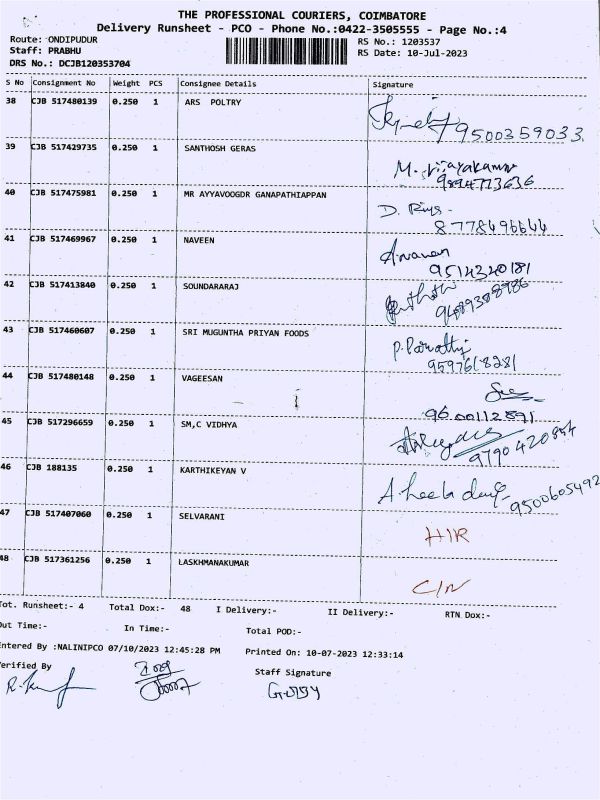 THE PROFESSIONAL COURIERS, COIMBATORE
Delivery Runsheet - PCO - Phone No.:0422-3505555 - Page No.:4
Route: ONDIPUDUR RS No.: 1203537
Staff: PRABHU RS Date: 10-Jul-2023
DRS No.: DCJB120353704
S No Consignment No Weight PCS Consignee Details Signature
38 CJB 517480139 0.250 1 ARS POLTRY
9500359033
39 CJB 517429735 0.250 1 SANTHOSH GERAS
M. Vijayakumar
9894773636
40 CJB 517475981 0.250 1 MR AYYAVOOGDR GANAPATHIAPPAN
D.
8778496644
41 CJB 517469967 0.250 1 NAVEEN
9514340181
42 CJB 517413840 0.250 1 SOUNDARARAJ
43 CJB 517460607 0.250 1 SRI MUGUNTHA PRIYAN FOODS
P. Parvathi
9597618281
44 CJB 517480148 0.250 1 VAGEESAN
9600112891
45 CJB 517296659 0.250 1 SM,C VIDHYA
9790420854
46 CJB 188135 0.250 1 KARTHIKEYAN V
9500605492
47 CJB 517407060 0.250 1 SELVARANI
H/R
48 CJB 517361256 0.250 1 LASKHMANAKUMAR
C/N
Tot. Runsheet:- 4 Total Dox:- 48 I Delivery:- II Delivery:- RTN Dox:-
Out Time:- In Time:- Total POD:-
Entered By :NALINIPCO 07/10/2023 12:45:28 PM Printed On: 10-07-2023 12:33:14
Verified By Staff Signature